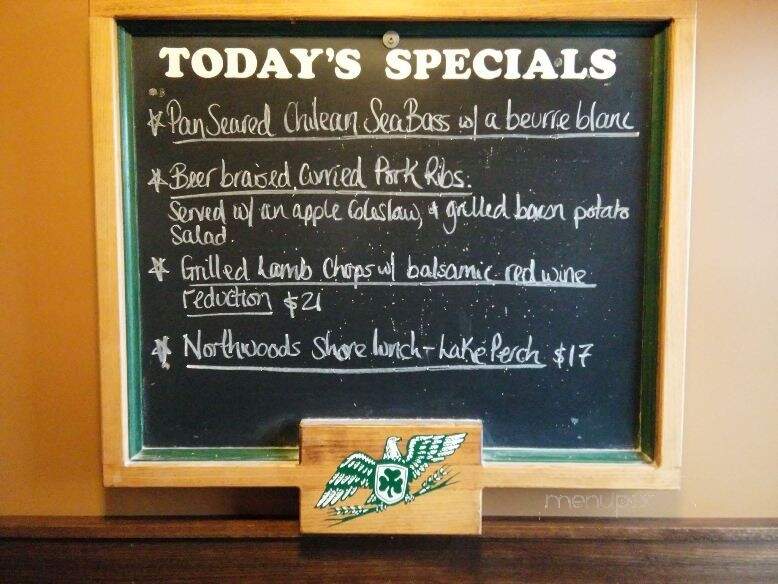 TODAY'S SPECIALS
☆ Pan Seared Chilean Sea Bass w/ a beurre blanc
☆ Beer braised Curried Pork Ribs.
Served w/ an apple Coleslaw, & grilled bacon potato
Salad.
☆ Grilled Lamb Chops w/ balsamic red wine
reduction $21
☆ Northwoods Shore lunch - Lake Perch $17
menupix